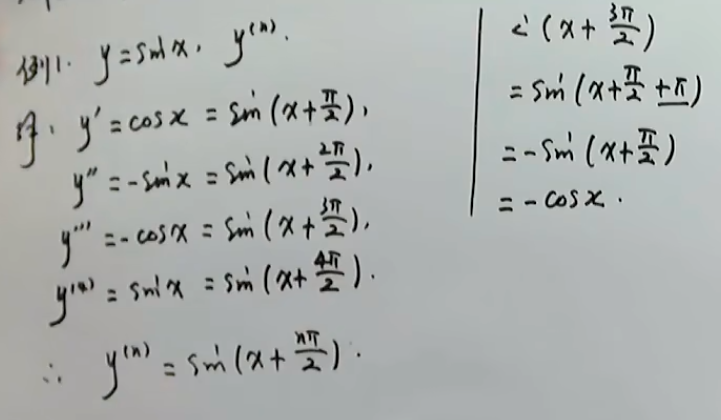 例1. y=sinx, y⁽ⁿ⁾.
解: y'=cosx=sin(x+π/2),
y''=-sinx=sin(x+2π/2),
y'''=-cosx=sin(x+3π/2),
y⁽⁴⁾=sinx=sin(x+4π/2).
∴ y⁽ⁿ⁾=sin(x+nπ/2).
(x+3π/2)
=sin(x+π/2+π)
=-sin(x+π/2)
=-cosx.